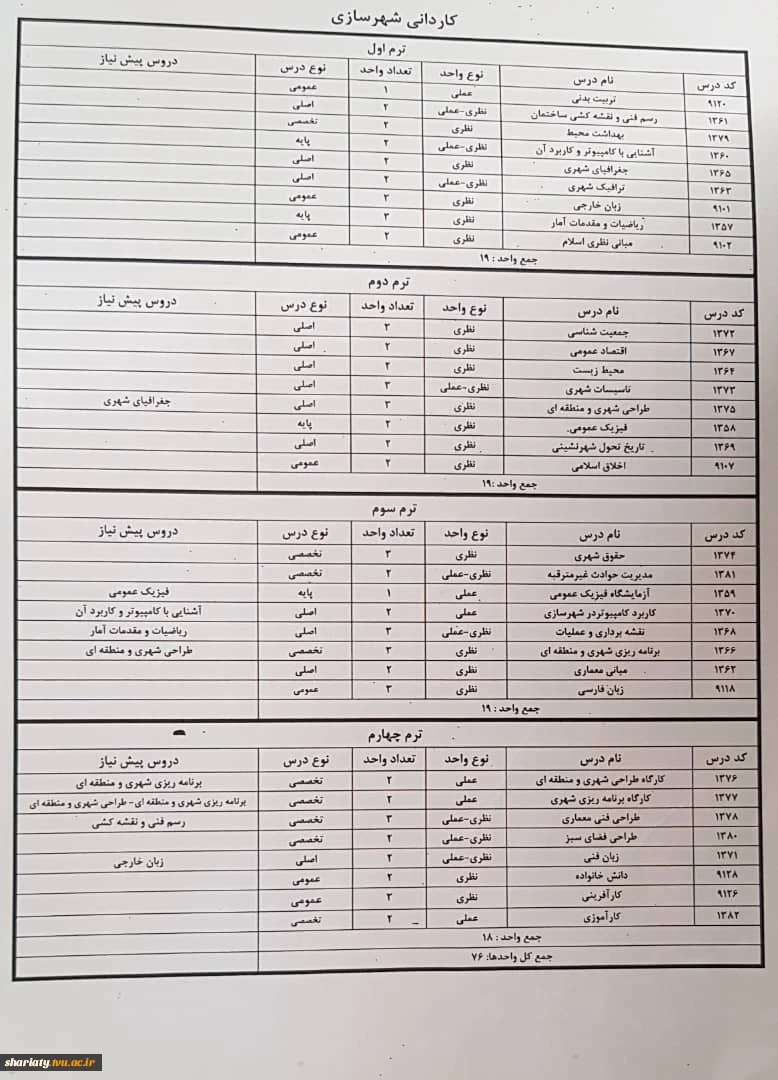 کاردانی شهرسازی
ترم اول
کد درس نام درس نوع واحد تعداد واحد نوع درس دروس پیش نیاز
۹۱۲۰ تربیت بدنی عملی ۱ عمومی
۱۳۶۱ رسم فنی و نقشه کشی ساختمان نظری-عملی ۲ اصلی
۱۳۷۹ بهداشت محیط نظری ۲ تخصصی
۱۳۶۰ آشنایی با کامپیوتر و کاربرد آن نظری-عملی ۲ پایه
۱۳۶۵ جغرافیای شهری نظری ۲ اصلی
۱۳۶۳ ترافیک شهری نظری-عملی ۲ اصلی
۹۱۰۱ زبان خارجی نظری ۳ عمومی
۱۳۵۷ ریاضیات و مقدمات آمار نظری ۳ پایه
۹۱۰۲ مبانی نظری اسلام نظری ۲ عمومی
جمع واحد : ۱۹
ترم دوم
کد درس نام درس نوع واحد تعداد واحد نوع درس دروس پیش نیاز
۱۳۷۲ جمعیت شناسی نظری ۳ اصلی
۱۳۶۷ اقتصاد عمومی نظری ۲ اصلی
۱۳۶۴ محیط زیست نظری ۲ اصلی
۱۳۷۳ تاسیسات شهری نظری-عملی ۳ اصلی
۱۳۷۵ طراحی شهری و منطقه ای نظری ۳ اصلی جغرافیای شهری
۱۳۵۸ فیزیک عمومی نظری ۲ پایه
۱۳۶۹ تاریخ تحول شهرنشینی نظری ۲ اصلی
۹۱۰۷ اخلاق اسلامی نظری ۲ عمومی
جمع واحد :۱۹
ترم سوم
کد درس نام درس نوع واحد تعداد واحد نوع درس دروس پیش نیاز
۱۳۷۴ حقوق شهری نظری ۳ تخصصی
۱۳۸۱ مدیریت حوادث غیرمترقبه نظری-عملی ۲ تخصصی
۱۳۵۹ آزمایشگاه فیزیک عمومی عملی ۱ پایه فیزیک عمومی
۱۳۷۰ کاربرد کامپیوتردر شهرسازی عملی ۲ اصلی آشنایی با کامپیوتر و کاربرد آن
۱۳۶۸ نقشه برداری و عملیات نظری-عملی ۳ اصلی ریاضیات و مقدمات آمار
۱۳۶۶ برنامه ریزی شهری و منطقه ای نظری ۳ تخصصی طراحی شهری و منطقه ای
۱۳۶۲ مبانی معماری نظری ۲ اصلی
۹۱۱۸ زبان فارسی نظری ۳ عمومی
جمع واحد : ۱۹
ترم چهارم
کد درس نام درس نوع واحد تعداد واحد نوع درس دروس پیش نیاز
۱۳۷۶ کارگاه طراحی شهری و منطقه ای عملی ۲ تخصصی برنامه ریزی شهری و منطقه ای
۱۳۷۷ کارگاه برنامه ریزی شهری عملی ۲ تخصصی برنامه ریزی شهری و منطقه ای- طراحی شهری و منطقه ای
۱۳۷۸ طراحی فنی معماری نظری-عملی ۳ تخصصی رسم فنی و نقشه کشی
۱۳۸۰ طراحی فضای سبز نظری-عملی ۲ تخصصی
۱۳۷۱ زبان فنی نظری-عملی ۲ اصلی زبان خارجی
۹۱۲۸ دانش خانواده نظری ۲ عمومی
۹۱۲۶ کارآفرینی نظری ۳ عمومی
۱۳۸۲ کارآموزی عملی ۲ تخصصی
جمع واحد : ۱۸
جمع کل واحدها: ۷۶
shariaty.tvu.ac.ir